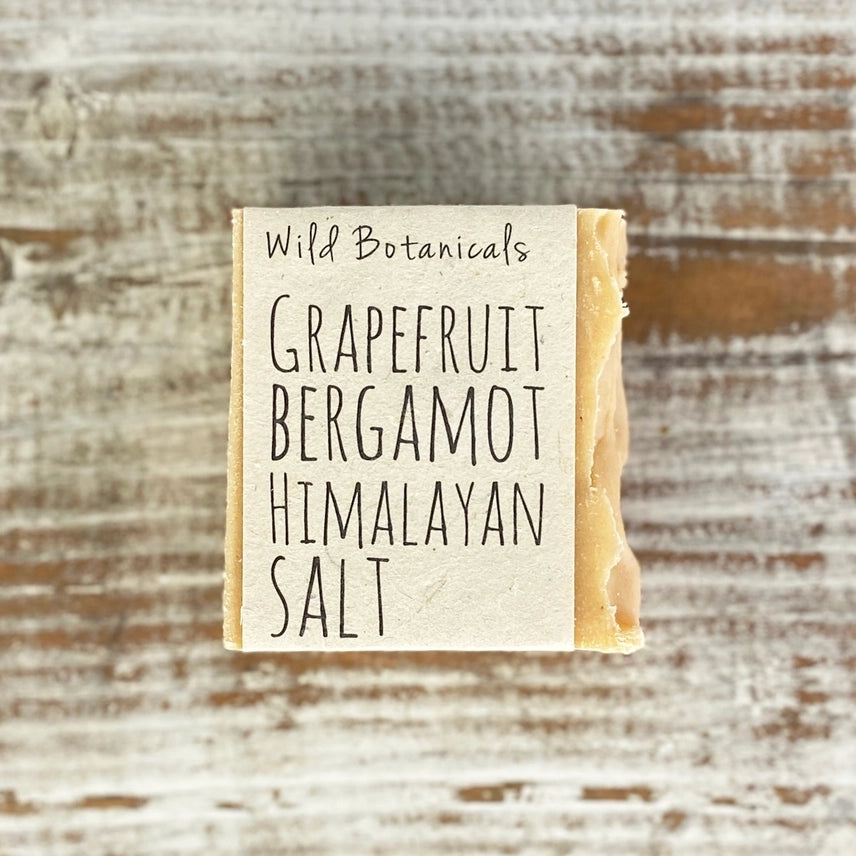 Wild Botanicals
GRAPEFRUIT
BERGAMOT
HIMALAYAN
SALT